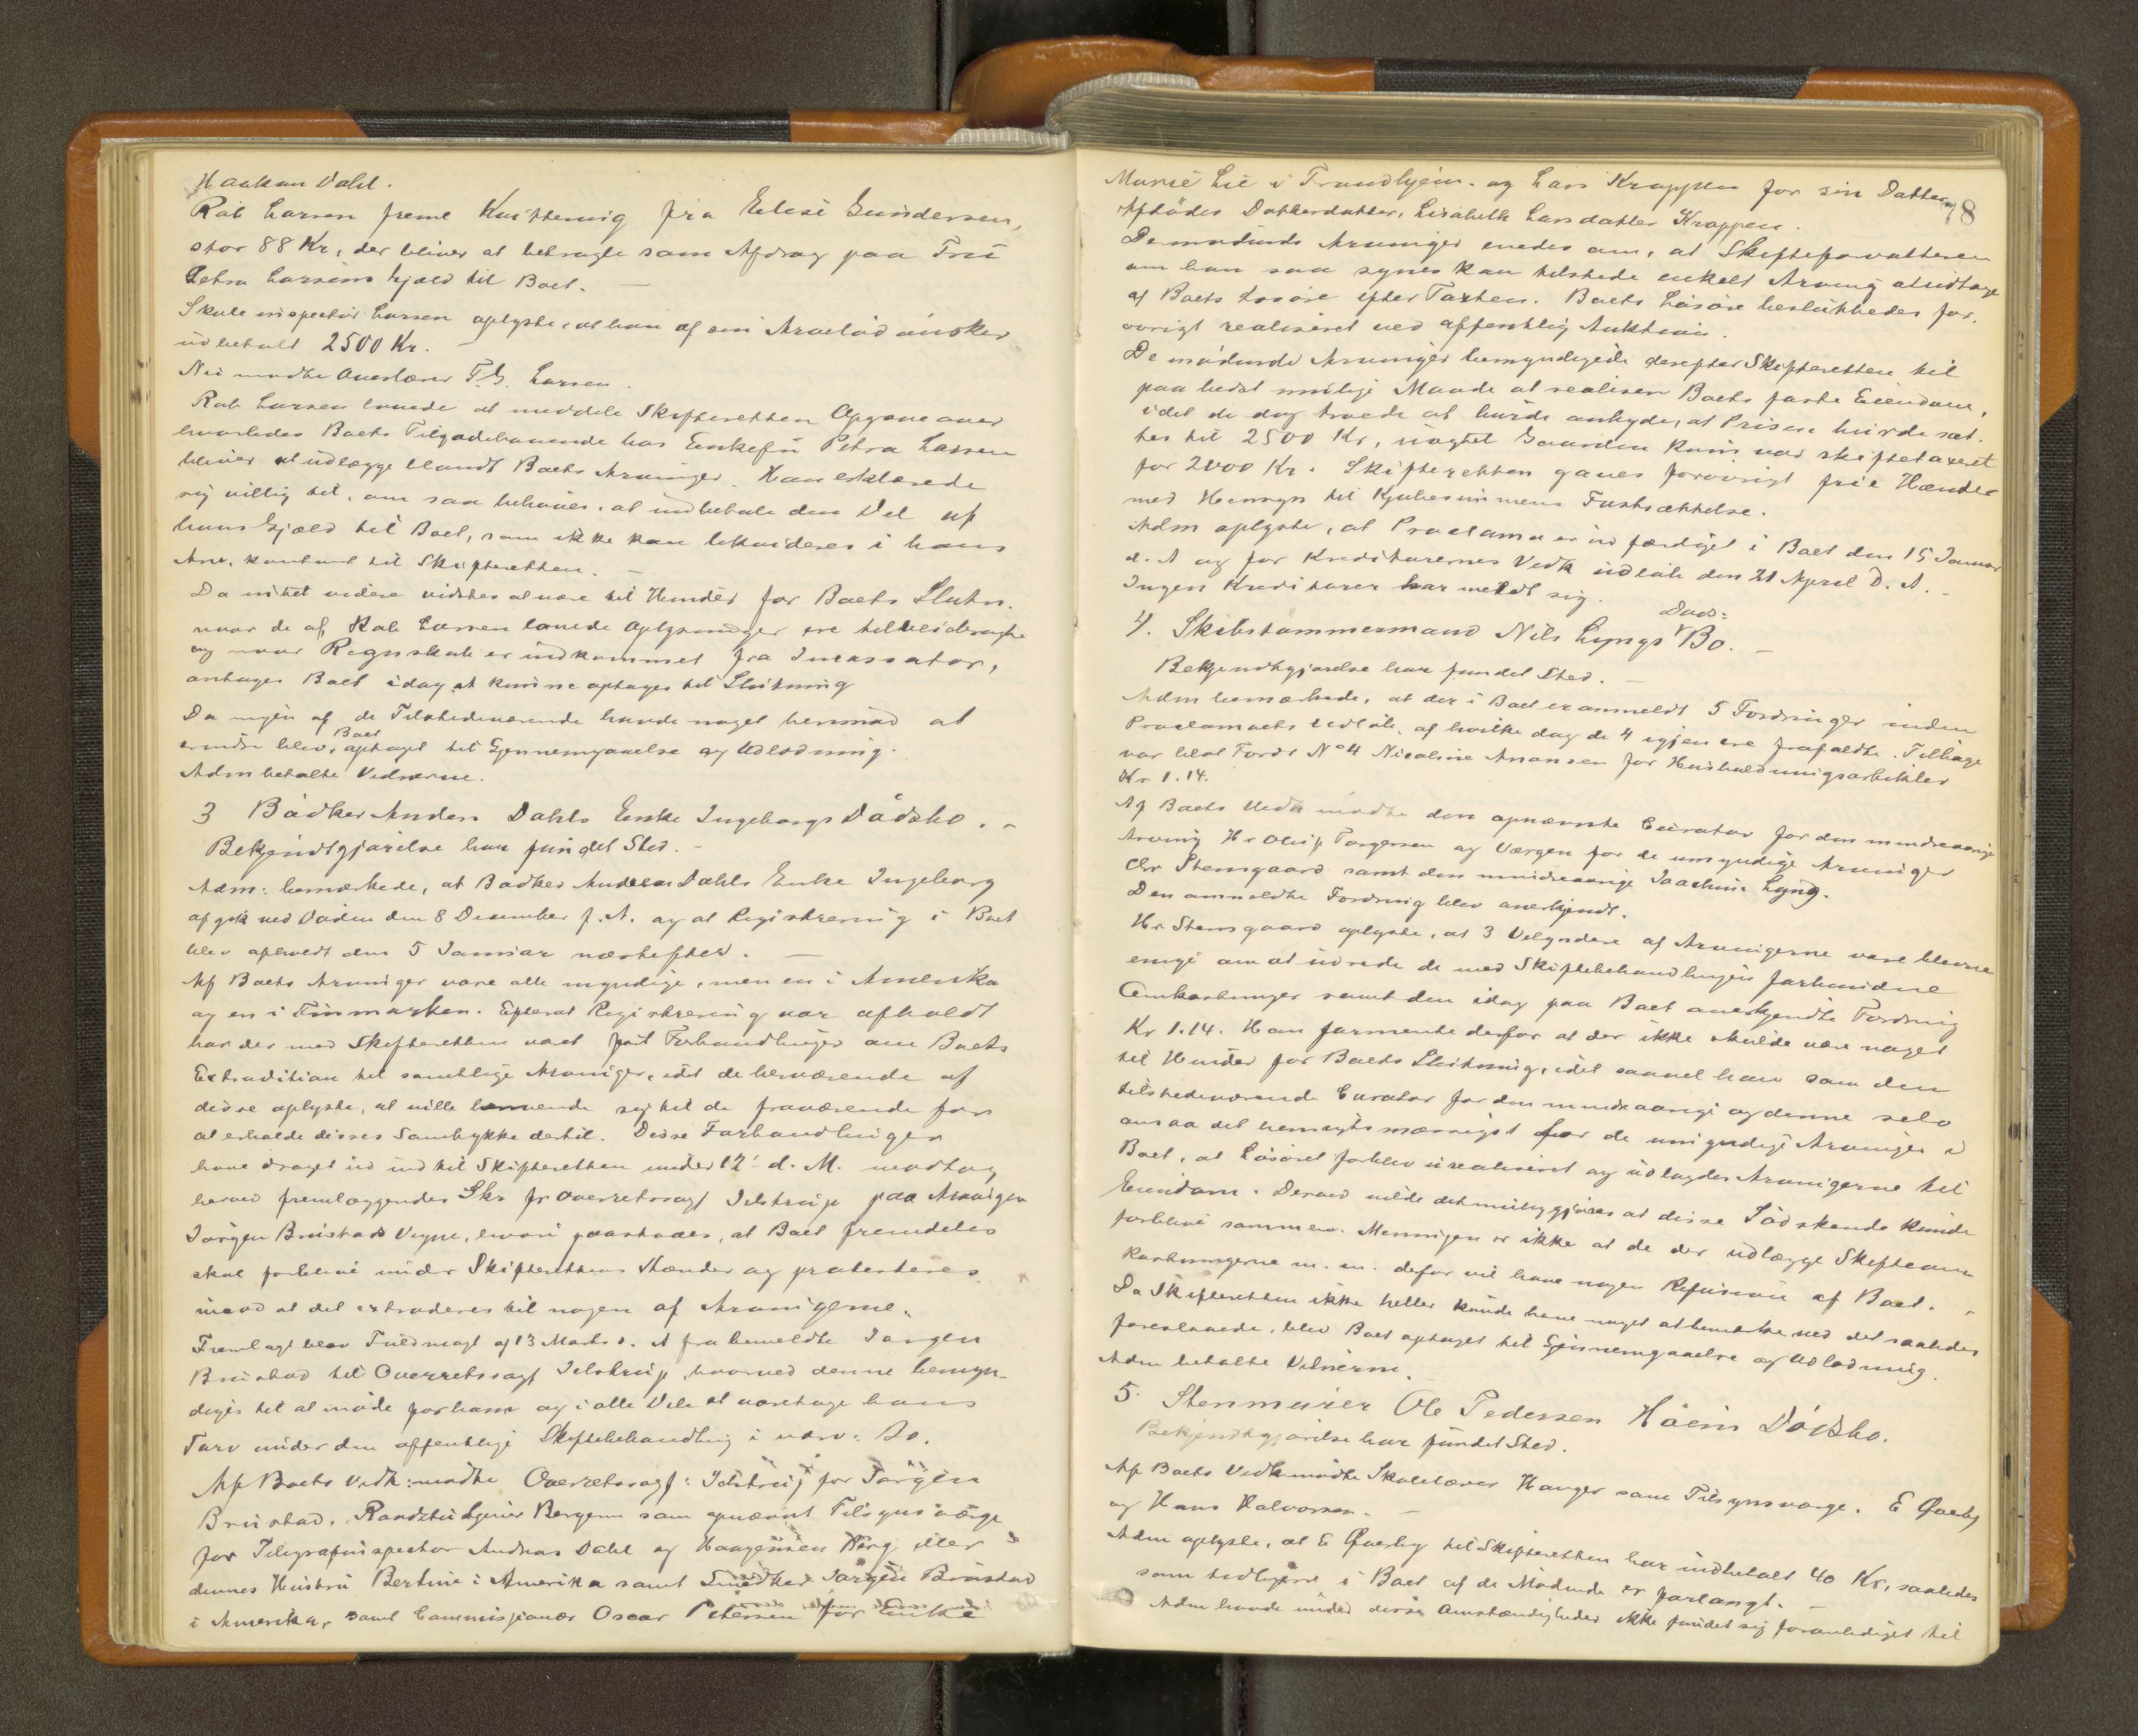 Haakon Dahl.
Rab Larsen freml Kvittering fra Elise Gundersen,
stor 88 Kr, der bliver at betragte som Afdrag paa Fru
Petra Larsens Gjæld til Boet. —
Skoleinspektør Larsen oplyste, at han af sin Arvelod ønsker
udbetalt 2500 Kr. —
Nu mødte Overlærer T. G. Larsen.
Rab Larsen lovede at meddele Skifteretten Opgave over
hvorledes Boets Tilgodehavende hos Enkefru Petra Larsen
bliver at udlægge blandt Boets Arvinger. Han erklærede
sig villig til, om saa behøves, at indbetale den Del af
hans Gjæld til Boet, som ikke kan likvideres i hans
Arv, kontant til Skifteretten. —
Da intet videre vidstes at være til Hinder for Boets Slutn.
naar de af Rab Larsen lovede Oplysninger ere tilveiebragte
og naar Regnskab er indkommet fra Incassator,
antages Boet idag at kunne optages til Slutning
Da ingen af de Tilstedeværende havde noget herimod at
erindre blev Boet optaget til Gjennemgaaelse og Udlodning.
Adm betalte Vidnerne.
3 Bødker Anders Dahls Enke Ingeborgs Dødsbo. –
Bekjendtgjørelse har fundet Sted. –
Adm: bemærkede, at Bødker Anders Dahls Enke Ingeborg
afgik ved Døden den 8 Desember f. A. og at Registrering i Boet
blev afholdt den 5 Januar næstefter. —
Af Boets Arvinger vare alle myndige, men en i Amerika
og en i Finmarken. Efterat Registrering var afholdt
har der med Skifteretten vært ført Forhandlinger om Boets
Extradition til samtlige Arvinger, idet de herværende af
disse oplyste, at ville henvende sig til de fraværende for
at erholde disses Samtykke dertil. Disse Forhandlinger
have draget ud indtil Skifteretten under 12' d. M. modtog
herved fremlæggendes Skr fr Overretssagf Jelstrup paa Arvingen
Jørgen Brustads Vegne, hvori paastodes, at Boet fremdeles
skal forblive under Skifterettens Hænder og protesteres
imod at det extraderes til nogen af Arvingerne.
Fremlagt blev Fuldmagt af 13 Marts d. A fra bemeldte Jørgen
Brustad til Overretssagf Jelstrup, hvorved denne bemyn-
diges til at møde for ham og i alle Dele at varetage hans
Tarv under den offentlige Skiftebehandling i nærv: Bo.
Af Boets Vedk: mødte Overretssagf: Jelstrup for Jørgen
Brustad. Bergem som opnævnt Tilsynsværge
for Telegrafinspector Andreas Dahl og Haagensen Berg eller
dennes Hustru Bertine i Amerika samt Jørgen Brustad
i Amerika, samt Commissionær Oscar Petersen for Enke
78
Marie Lie i Trondhjem. og Lars Kroppen for sin Datter,
Afdødes Datterdatter, Lisabeth Larsdatter Kroppen.
De mødende Arvinger enedes om, at Skifteforvalteren
om han saa synes kan tilstede enkelt Arving at udtage
af Boets Løsøre efter Taxten. Boets Løsøre besluttedes for-
øvrigt realiseret ved offentlig Auktion.
De mødende Arvinger bemyndigede derefter Skifteretten til
paa bedst mulige Maade at realisere Boets faste Eiendom,
idet de dog troede at burde antyde, at Prisen burde sæt-
tes til 2500 Kr, uagtet Gaarden kun var skiftetaxeret
for 2000 Kr. Skifteretten gaves forøvrigt frie Hænder
med Hensyn til Kjøbesummens Fastsættelse.
Adm oplyste, at Proclama er udfærdiget i Boet den 15 Januar
d. A og for Kreditorernes Vedk udløb den 21 April D. A. –
Ingen Kreditorer har meldt sig.
4. Skibstømmermand Nils Lyngs Døds= Bo. –
Bekjendtgjørelse har fundet Sted. –
Adm bemærkede, at der i Boet er anmeldt 5 Fordringer inden
Proclamaets Udløb, af hvilke dog de 4 igjen ere frafaldte. Tilbage
var blot Fordr No 4 Nicoline Anansen for Husholdningsartikler
Kr 1.14.
Af Boets Vedk mødte den opnævnte Curator for den mindreaarige
Arving Hr Oluf Torgersen og Værgen for de umyndige Arvinger
Chr Stensgaard samt den mindreaarige Joachim Lyng.
Den anmeldte Fordring blev anerkjendt.
Hr Stensgaard oplyste, at 3 Velyndere af Arvingerne vare blevne
enige om at udrede de med Skiftebehandlingen forbundne
Omkostninger samt den idag paa Boet anerkjendte Fordring
Kr 1.14. Han formente derfor at der ikke skulde være noget
til Hinder for Boets Slutning, idet saavel han som den
tilstedeværende Curator for den mindreaarige og denne selv
ansaa det hensigtsmæssigst for de umyndige Arvinger i
Boet, at Løsøret forblev urealiseret og udlagdes Arvingerne til
Eiendom. Derved vilde det muliggjøres at disse Sødskende kunde
forblive sammen. Meningen er ikke at de der udlægge Skifteom-
kostningerne m. m. derfor vil have nogen Refusion af Boet. –
Da Skifteretten ikke heller kunde have noget at bemærke ved det saaledes
foreslaaede, blev Boet optaget til Gjennemgaaelse og Udlodning.
Adm betalte Vidnerne.
5. Stenmurer Ole Pedersen Høens Dødsbo.
Bekjendtgjørelse har fundet Sted.
Af Boets Vedk mødte Skolelærer Hanger som Tilsynsværge. E Øverby
og Hans Halvorsen. –
Adm oplyste, at E Øverby til Skifteretten har indbetalt 40 Kr, saaledes
som tidligere i Boet af de Mødende er forlangt. –
Adm havde under disse Omstændigheder ikke fundet sig foranlediget til